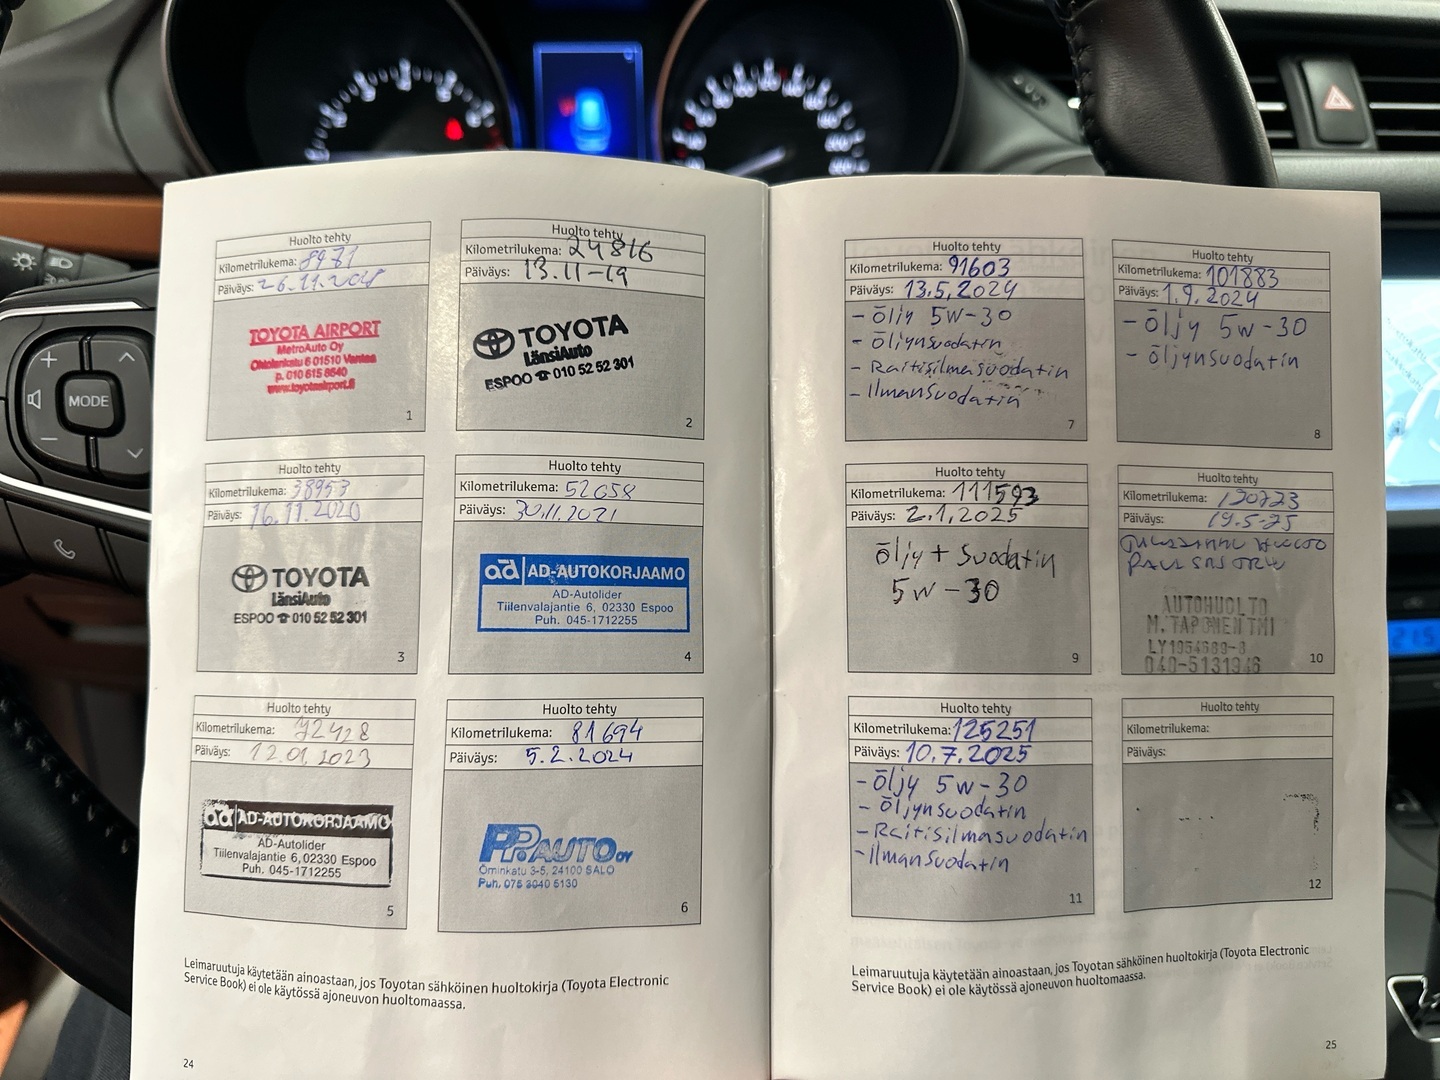 MODE
Huolto tehty
Kilometrilukema: 8971
Päiväys: 26.11.2018
TOYOTA AIRPORT
MetroAuto Oy
Ohtolankatu 6 01510 Vantaa
p. 010 615 8640
www.toyotaairport.fi
1
Huolto tehty
Kilometrilukema: 24816
Päiväys: 13.11-19
TOYOTA
LänsiAuto
ESPOO ☎ 010 52 52 301
2
Huolto tehty
Kilometrilukema: 38953
Päiväys: 16.11.2020
TOYOTA
LänsiAuto
ESPOO ☎ 010 52 52 301
3
Huolto tehty
Kilometrilukema: 52658
Päiväys: 30.11.2021
ad AD-AUTOKORJAAMO
AD-Autolider
Tiilenvalajantie 6, 02330 Espoo
Puh. 045-1712255
4
Huolto tehty
Kilometrilukema: 72428
Päiväys: 12.01.2023
ad AD-AUTOKORJAAMO
AD-Autolider
Tiilenvalajantie 6, 02330 Espoo
Puh. 045-1712255
5
Huolto tehty
Kilometrilukema: 81694
Päiväys: 5.2.2024
PP.AUTO OY
Örninkatu 3-5, 24100 SALO
Puh. 075 3040 5130
6
Leimaruutuja käytetään ainoastaan, jos Toyotan sähköinen huoltokirja (Toyota Electronic
Service Book) ei ole käytössä ajoneuvon huoltomaassa.
24
Huolto tehty
Kilometrilukema: 91603
Päiväys: 13.5.2024
- öljy 5w-30
- öljynsuodatin
- Raitisilmasuodatin
- Ilmansuodatin
7
Huolto tehty
Kilometrilukema: 101883
Päiväys: 1.9.2024
- öljy 5w-30
- öljynsuodatin
8
Huolto tehty
Kilometrilukema: 111593
Päiväys: 2.1.2025
öljy + suodatin
5w-30
9
Huolto tehty
Kilometrilukema: 120723
Päiväys: 19.5-25
AUTOHUOLTO
M. TAPONEN TMI
LY1954689-8
040-5131946
10
Huolto tehty
Kilometrilukema: 125251
Päiväys: 10.7.2025
- öljy 5w-30
- öljynsuodatin
- Raitisilmasuodatin
- Ilmansuodatin
11
Huolto tehty
Kilometrilukema:
Päiväys:
12
Leimaruutuja käytetään ainoastaan, jos Toyotan sähköinen huoltokirja (Toyota Electronic
Service Book) ei ole käytössä ajoneuvon huoltomaassa.
25